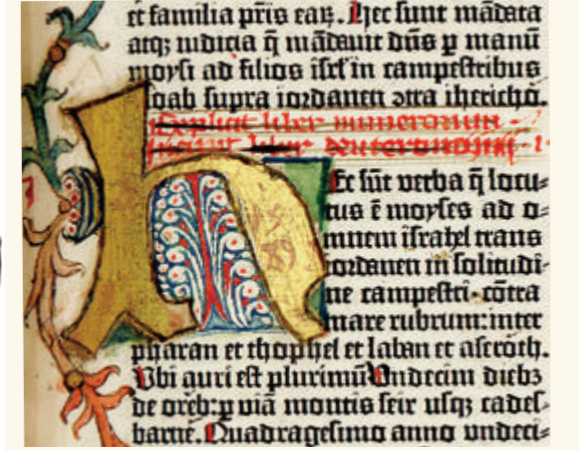 et familia p̄ris eaꝝ. Hec sunt mādata
atqꝫ iudicia q̄ mādauit dn̄s ꝑ manū
moysi ad filios isrl' in campestribus
moab supra iordanen ↄtra ihericho.
Explicit liber numerorum.
Incipit liber deuteronomij. I.
Ec sūt verba q̄ locu⸗
tus ē moyses ad o⸗
mnem israhel trans
iordanen in solitudi⸗
ne campestri·cōtra
mare rubrum:inter
pharan et thophel et laban et aseroth.
Ubi auri est plurimū Undecim diebꝫ
de oreb:ꝑ viā montis seir usqꝫ cades⸗
barne. Quadragesimo anno undeci⸗